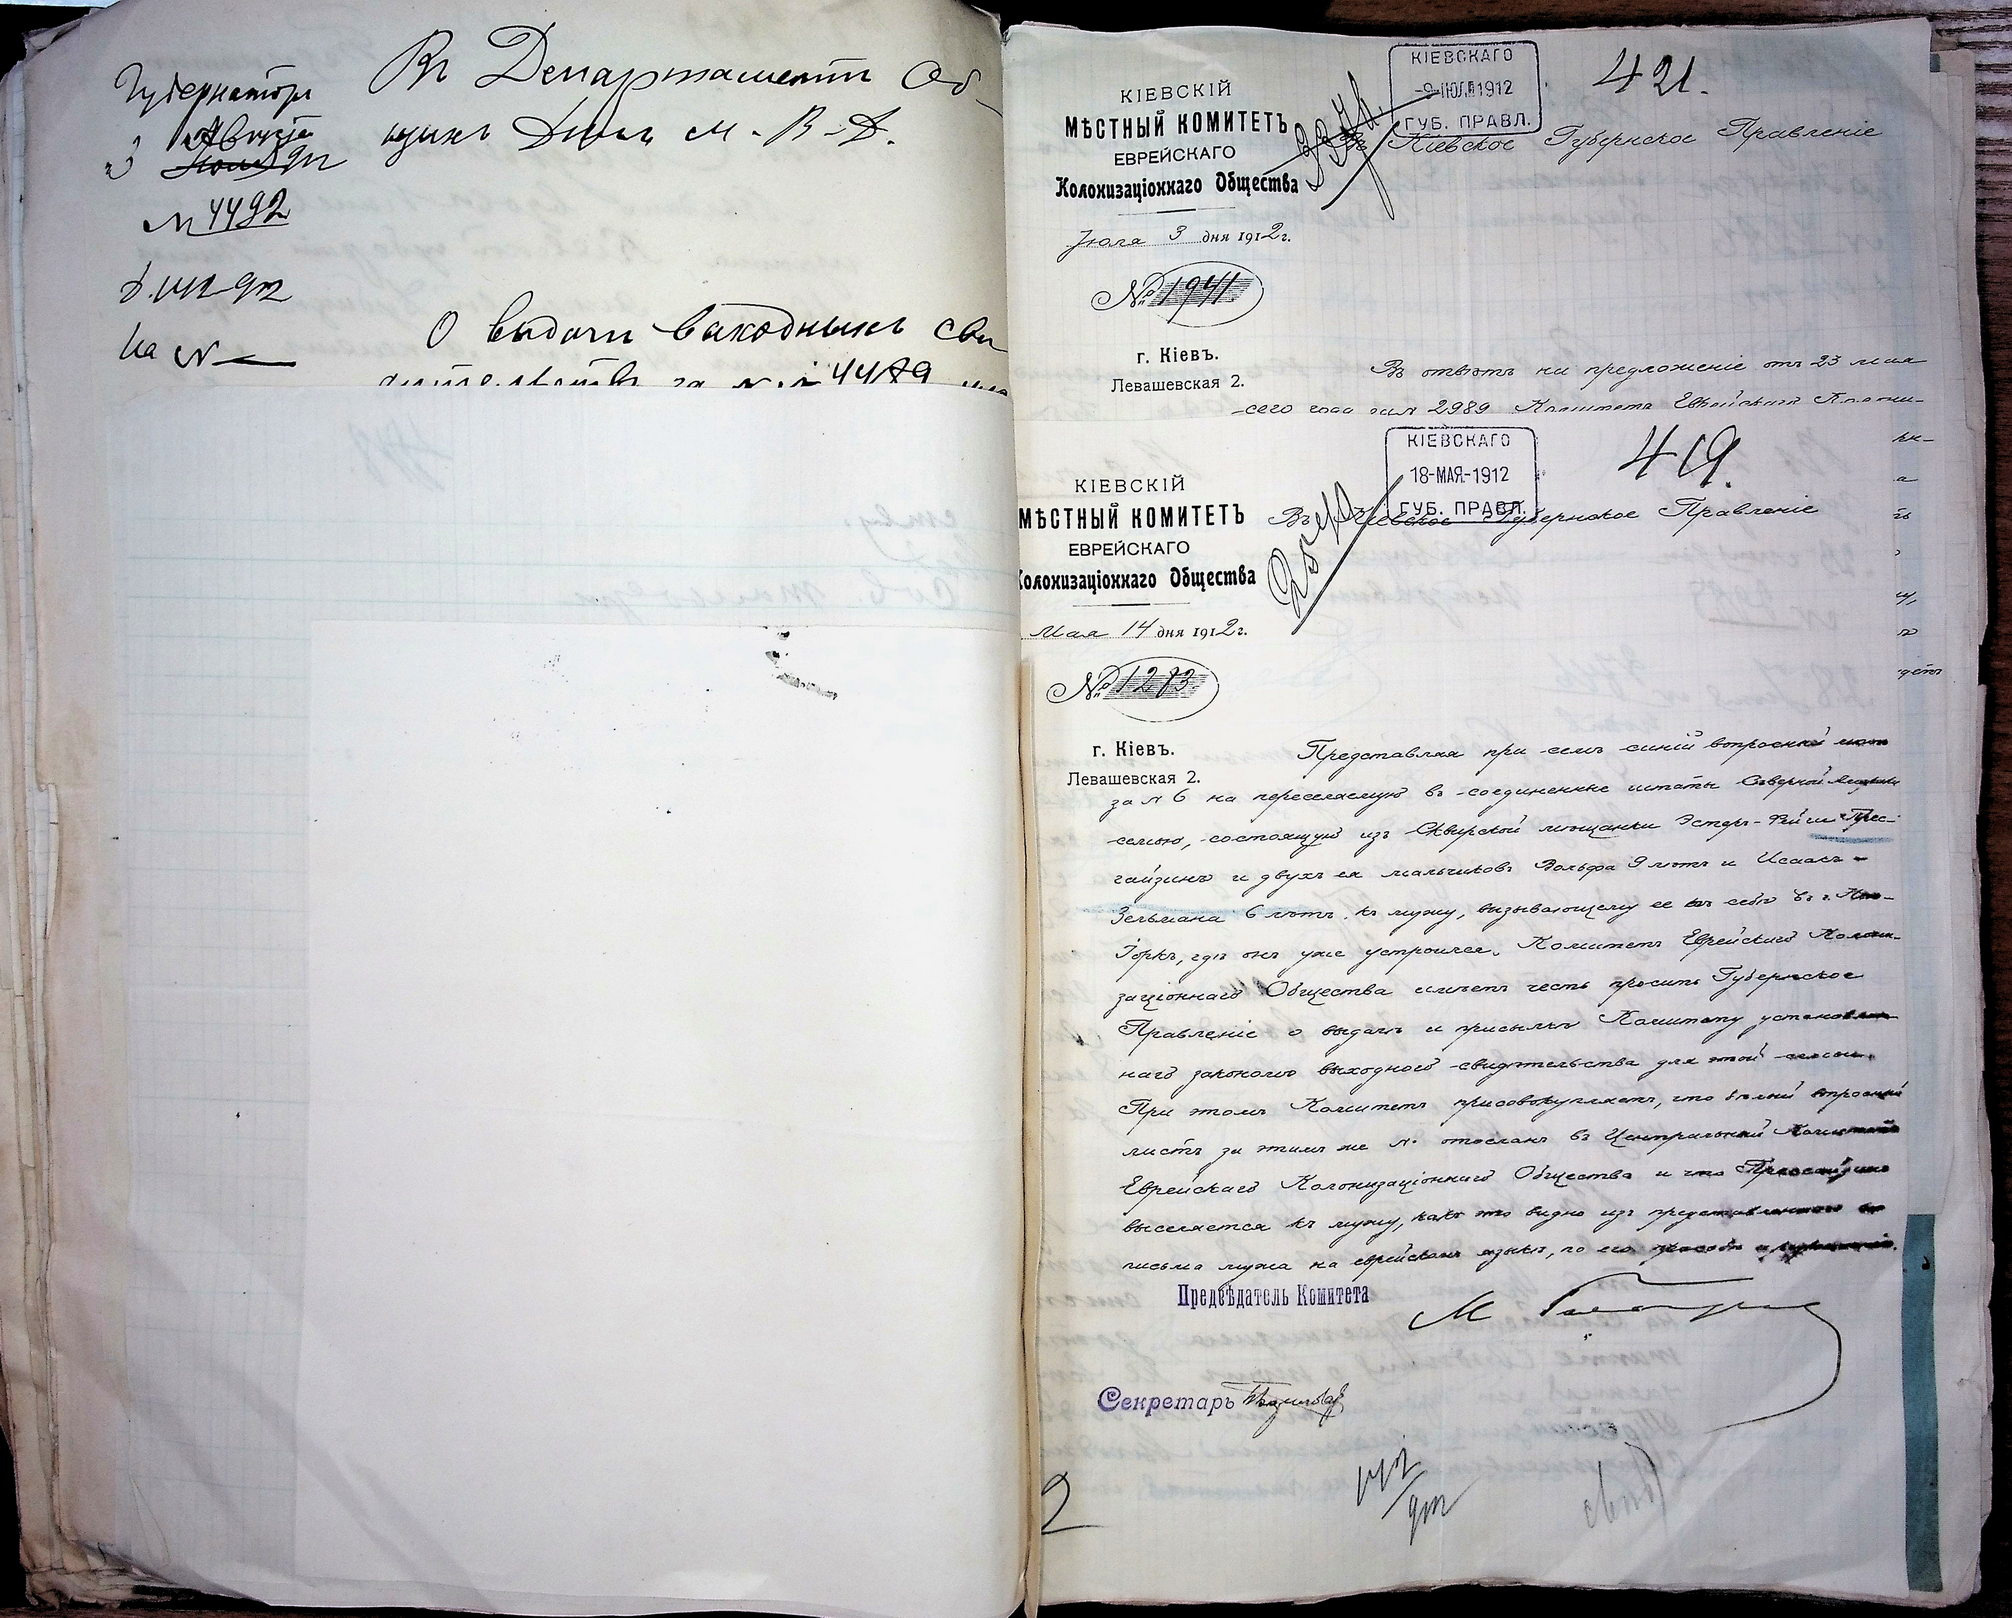 Губернаторъ
Августа
3
№ 4492
На №
Въ Департаментъ Об-
щихъ Дѣлъ М-В-Д.
О выдачи выходныхъ сви
дѣтельствъ за № 4489
421.
КІЕВСКАГО
-9-ІЮЛЯ 1912
ГУБ. ПРАВЛ.
КІЕВСКІЙ
МѢСТНЫЙ КОМИТЕТЪ
ЕВРЕЙСКАГО
Колонизаціоннаго Общества
Въ Кіевское Губернское Правленіе
Іюля 3 дня 1912 г.
№ 1941.
г. Кіевъ.
Левашевская 2.
Въ отвѣтъ на предложеніе отъ 23 мая
сего года за № 2989 Комитетъ Еврейскаго Колони-
419.
КІЕВСКАГО
18-МАЯ-1912
ГУБ. ПРАВЛ.
КІЕВСКІЙ
МѢСТНЫЙ КОМИТЕТЪ
ЕВРЕЙСКАГО
Колонизаціоннаго Общества
Въ Кіевское Губернское Правленіе
Мая 14 дня 1912 г.
№ 1283
г. Кіевъ.
Левашевская 2.
Представляя при семъ синій вопросный
за № 6 на переселяемую въ соединенные штаты Сѣверной Америки
семью, состоящую изъ Сквирской мѣщанки Эстеръ-Фейги
и двухъ ея мальчиковъ Вольфа 9 лѣтъ и Исаака-
Зельмана 6 лѣтъ къ мужу, вызывающему ее къ себѣ въ г. Нью-
Іоркъ, гдѣ онъ уже устроился. Комитетъ Еврейскаго Колони-
заціоннаго Общества имѣетъ честь просить Губернское
Правленіе о выдачѣ и присылкѣ Комитету установлен-
наго закономъ выходного свидѣтельства для этой семьи.
При этомъ Комитетъ присовокупляетъ, что бѣлый вопросный
листъ за этимъ же № отосланъ въ Центральный Комитетъ
Еврейскаго Колонизаціоннаго Общества и что
выселяется къ мужу, какъ это видно изъ представленнаго
письма мужа на еврейскомъ языкѣ, по его
Предсѣдатель Комитета
Секретарь
2